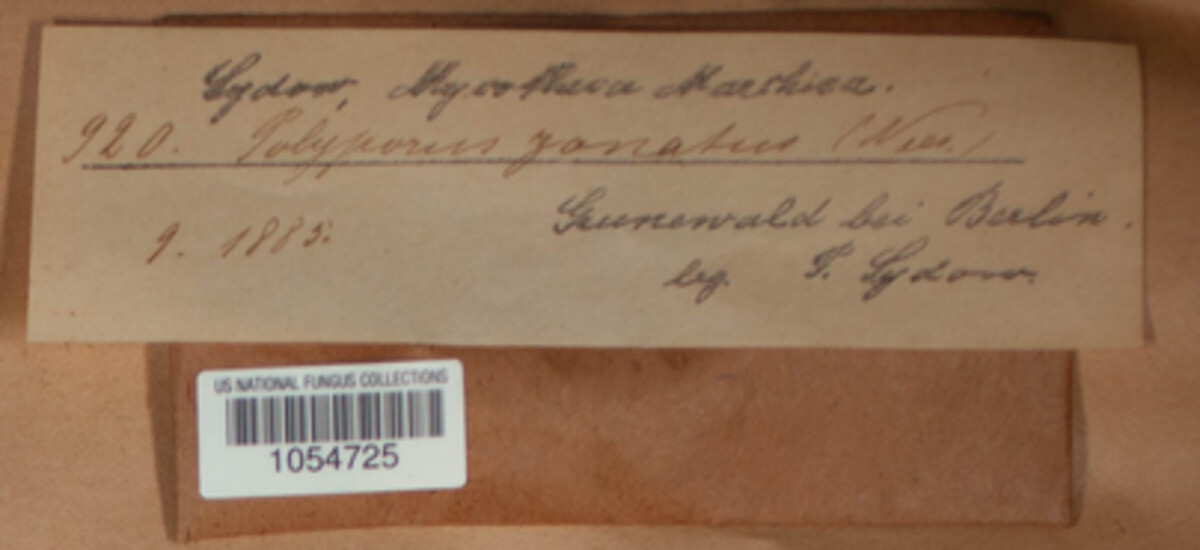 Sydow, Mycotheca Marchica.
920. Polyporus zonatus (Nees.)
9. 1885.
Grunewald bei Berlin.
leg. P. Sydow.
US NATIONAL FUNGUS COLLECTIONS
1054725